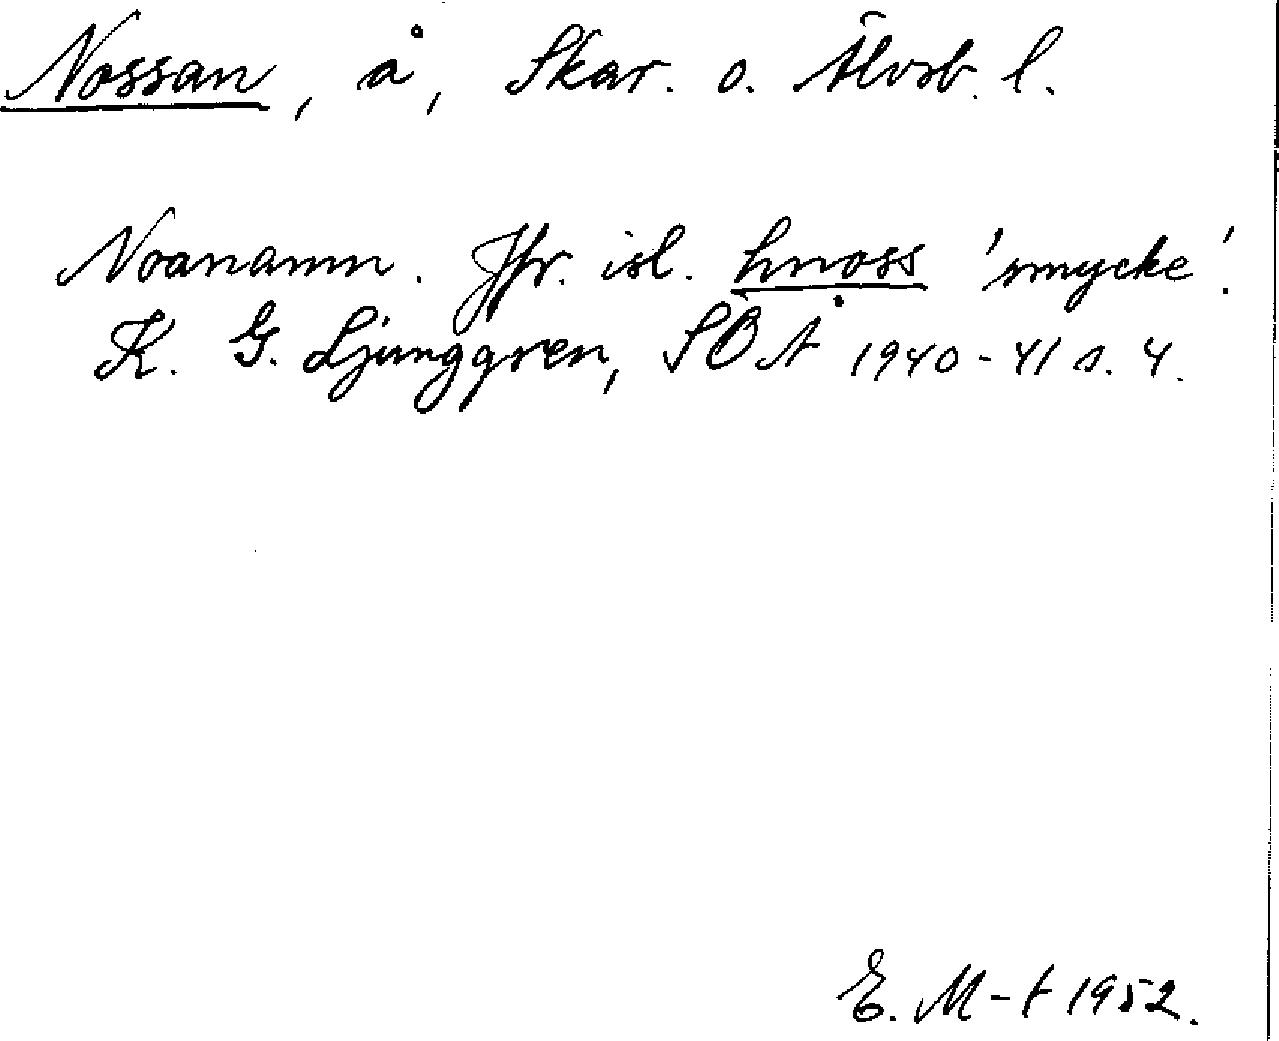 Nossan, å, Skar. o. Älvsb. l.
Noanamn. Jfr. isl. hnoss 'smycke'.
K. G. Ljunggren, SOÅ 1940-41 s. 4.
E. M-t 1952.